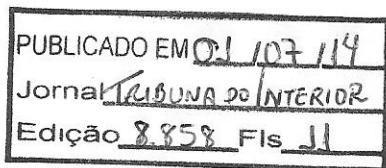 PUBLICADO EM 01 / 07 / 14
Jornal TRIBUNA DO INTERIOR
Edição 8.858 Fls 11